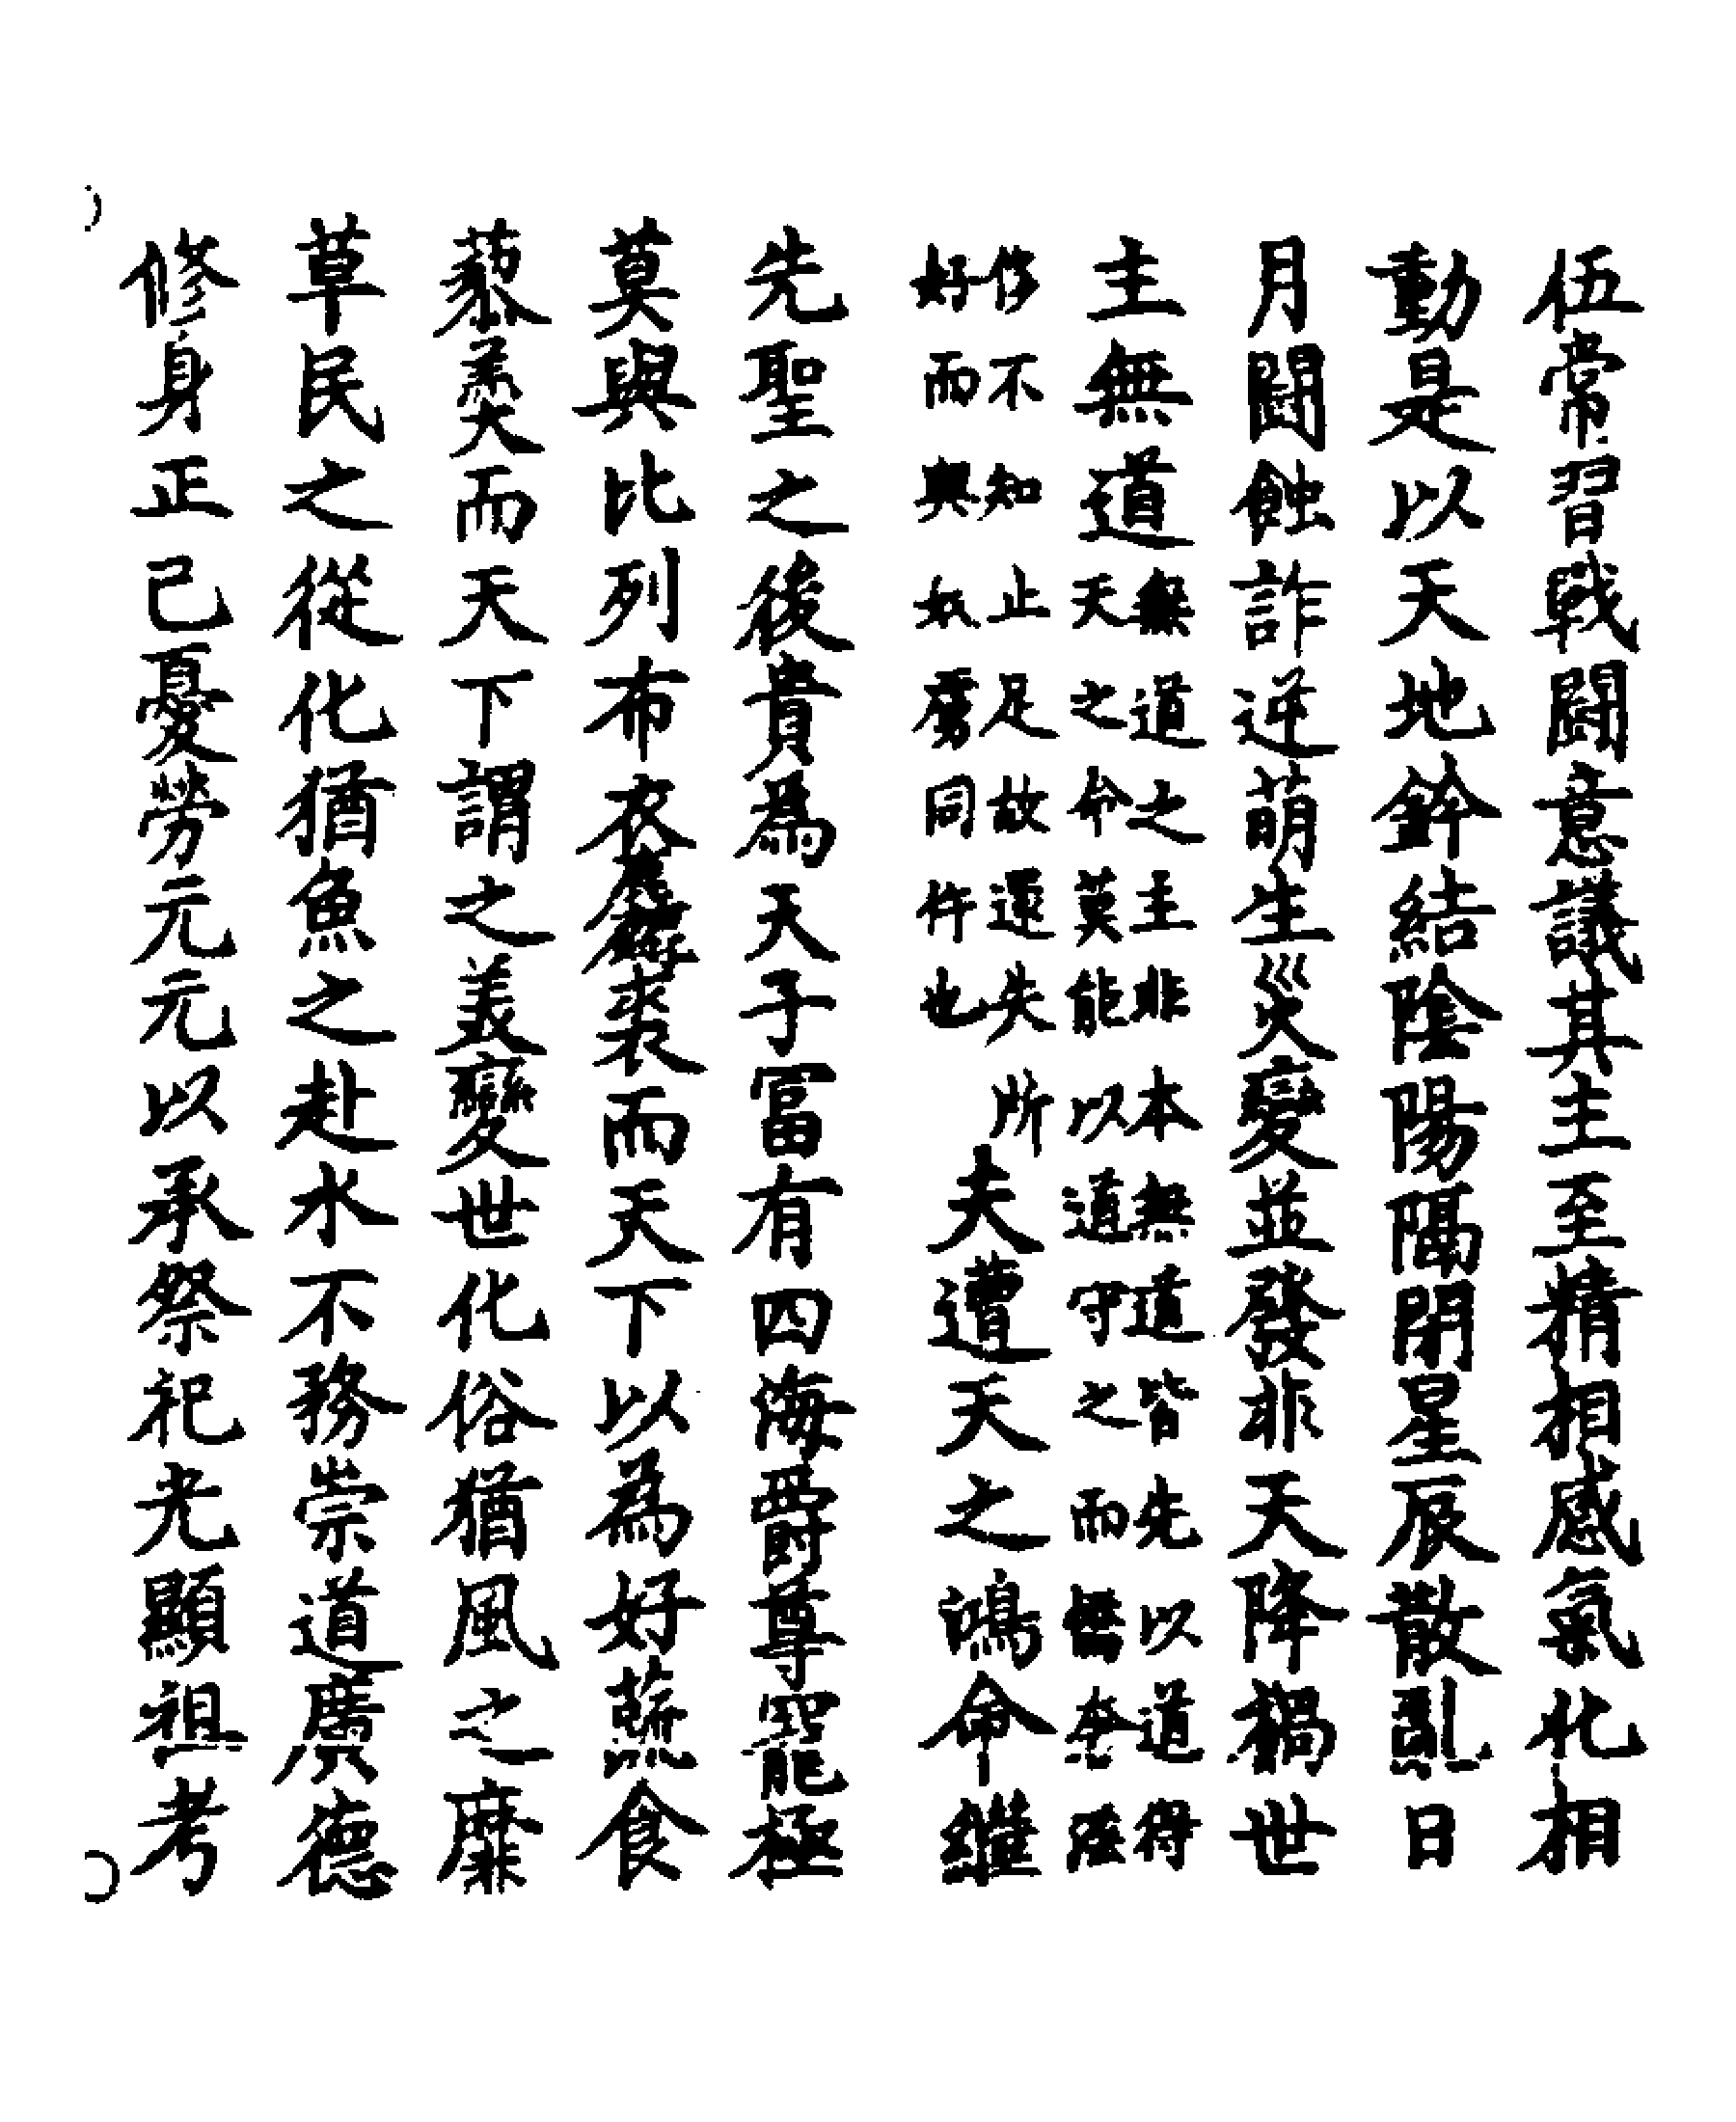 伍常習戰鬪意議其主至精相感氣化相
動是以天地鉾結陰陽隔閉星辰散亂日
月鬪蝕詐逆萌生災變並發非天降禍世
主無道無道之主非本無道皆先以道得
天之命莫能以道守之而驕奢淫
侈不知止足故還失所
好而與奴虜同忤也夫遭天之鴻命繼
先聖之後貴為天子富有四海爵尊寵極
莫與比列布衣麤裘而天下以為好蔬食
藜羹而天下謂之美變世化俗猶風之靡
草民之從化猶魚之赴水不務崇道廣德
修身正己憂勞元元以承祭祀光顯祖考